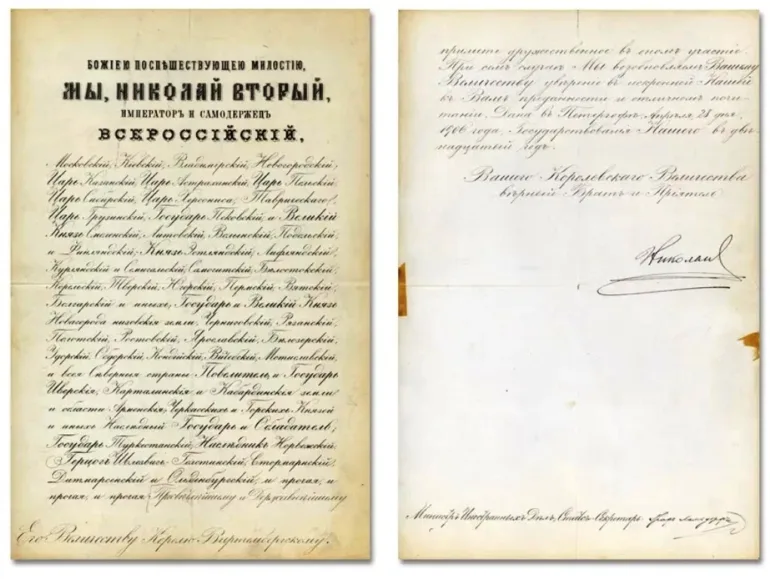 БОЖІЕЮ ПОСПѢШЕСТВУЮЩЕЮ МИЛОСТІЮ,
МЫ, НИКОЛАЙ ВТОРЫЙ,
ИМПЕРАТОРЪ И САМОДЕРЖЕЦЪ
ВСЕРОССІЙСКІЙ,
Московскій, Кіевскій, Владимірскій, Новогородскій,
Царь Казанскій, Царь Астраханскій, Царь Польскій,
Царь Сибирскій, Царь Херсониса Таврическаго,
Царь Грузинскій, Государь Псковскій и Великій
Князь Смоленскій, Литовскій, Волынскій, Подольскій
и Финляндскій; Князь Эстляндскій, Лифляндскій,
Курляндскій и Семигальскій, Самогитскій, Бѣлостокскій,
Корельскій, Тверскій, Югорскій, Пермскій, Вятскій,
Болгарскій и иныхъ; Государь и Великій Князь
Новагорода низовскія земли, Черниговскій, Рязанскій,
Полотскій, Ростовскій, Ярославскій, Бѣлозерскій,
Удорскій, Обдорскій, Кондійскій, Витебскій, Мстиславскій
и всея Сѣверныя страны Повелитель; и Государь
Иверскія, Карталинскія и Кабардинскія земли
и области Арменскія; Черкасскихъ и Горскихъ Князей
и иныхъ Наслѣдный Государь и Обладатель;
Государь Туркестанскій; Наслѣдникъ Норвежскій,
Герцогъ Шлезвигъ-Голстинскій, Стормарнскій,
Дитмарсенскій и Ольденбургскій, и прочая, и
прочая, и прочая. Пресвѣтлѣйшему и Державнѣйшему
Его Величеству Королю Виртембергскому.
примете дружественное въ ономъ участіе.
При семъ случаѣ Мы возобновляемъ Вашему
Величеству увѣреніе въ искренней Нашей
къ Вамъ преданности и отличномъ почи-
таніи. Дана въ Петергофѣ, Апрѣля 28 дня,
1906 года, Государствованія Нашего въ двѣ-
надцатый годъ.
Вашего Королевскаго Величества
вѣрный Братъ и Пріятель
Николай
Министръ Иностранныхъ Дѣлъ, Статсъ-Секретарь Графъ Ламсдорфъ